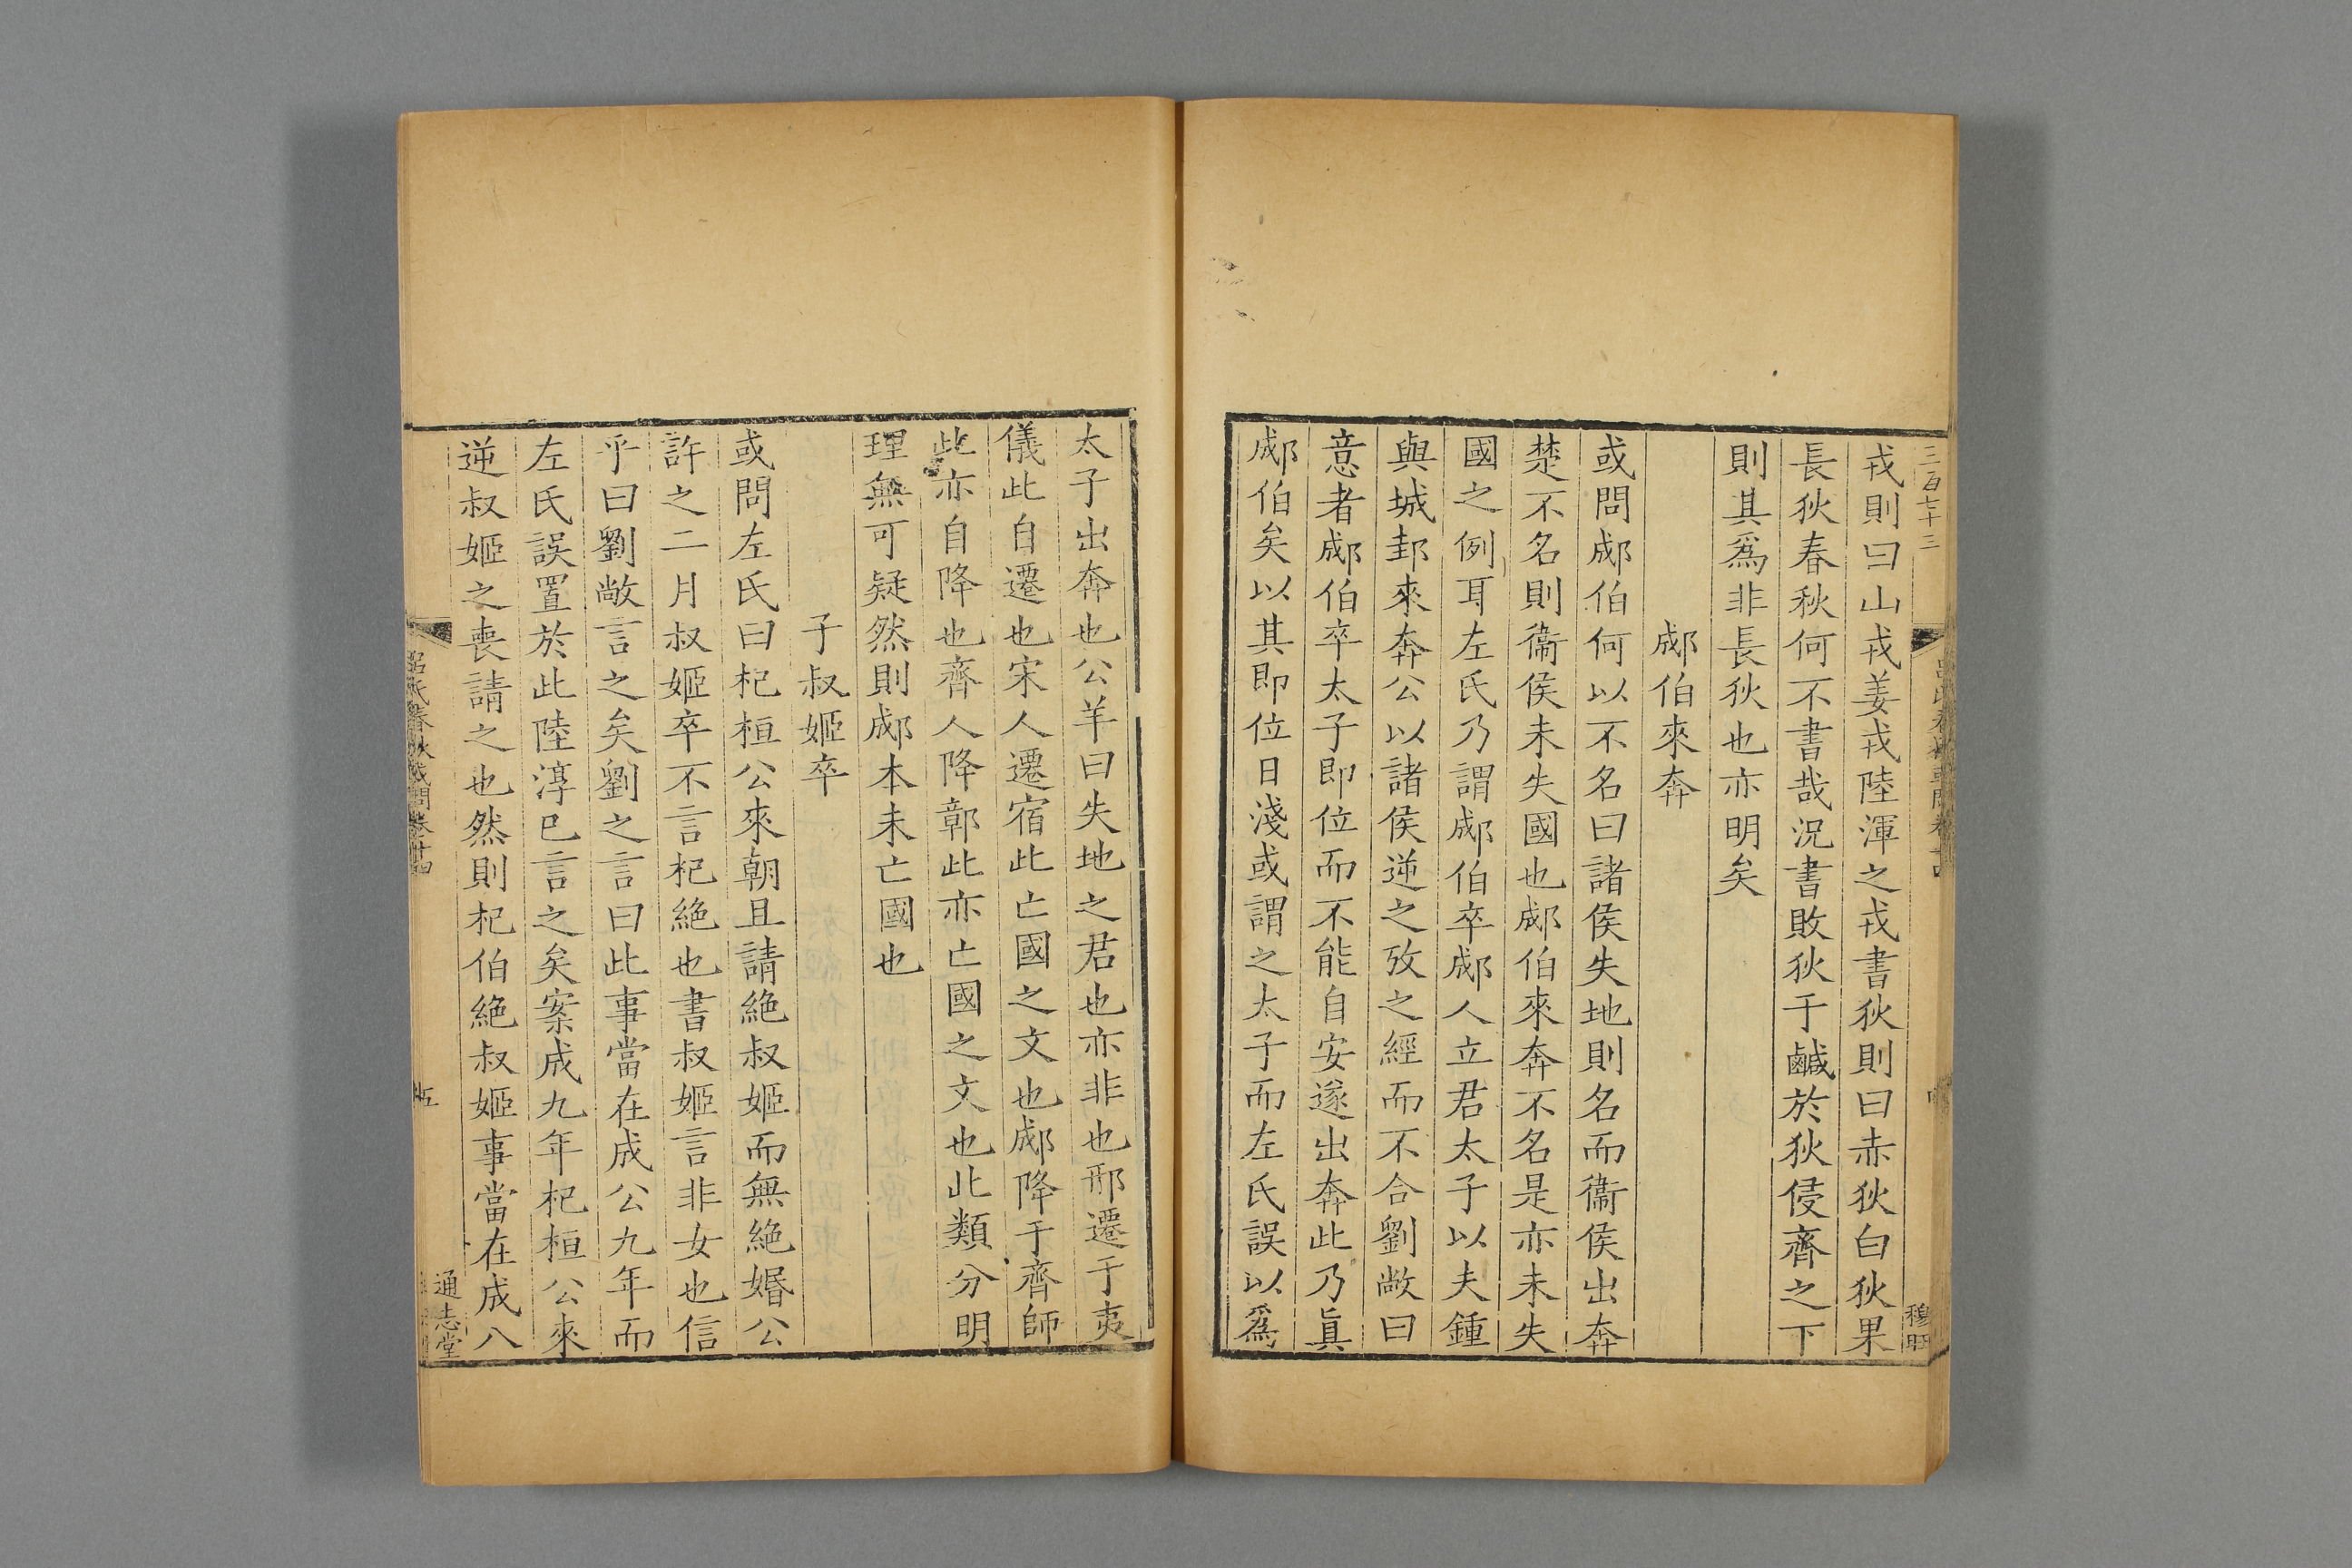 三百七十三
戎則曰山戎姜戎陸渾之戎書狄則曰赤狄白狄果
長狄春秋何不書哉況書敗狄于鹹於狄侵齊之下
則其爲非長狄也亦明矣
郕伯來奔
或問郕伯何以不名曰諸侯失地則名而衞侯出奔
楚不名則衞侯未失國也郕伯來奔不名是亦未失
國之例耳左氏乃謂郕伯卒郕人立君太子以夫鍾
與城邽來奔公以諸侯逆之攷之經而不合劉敞曰
意者郕伯卒太子即位而不能自安遂出奔此乃眞
郕伯矣以其即位日淺或謂之太子而左氏誤以爲
太子出奔也公羊曰失地之君也亦非也邢遷于夷
儀此自遷也宋人遷宿此亡國之文也郕降于齊師
此亦自降也齊人降鄣此亦亡國之文也此類分明
理無可疑然則郕本未亡國也
子叔姬卒
或問左氏曰杞桓公來朝且請絶叔姬而無絶婚公
許之二月叔姬卒不言杞絶也書叔姬言非女也信
乎曰劉敞言之矣劉之言曰此事當在成公九年而
左氏誤置於此陸淳巳言之矣案成九年杞桓公來
逆叔姬之喪請之也然則杞伯絶叔姬事當在成八
呂氏春秋或問卷十四
五
通志堂